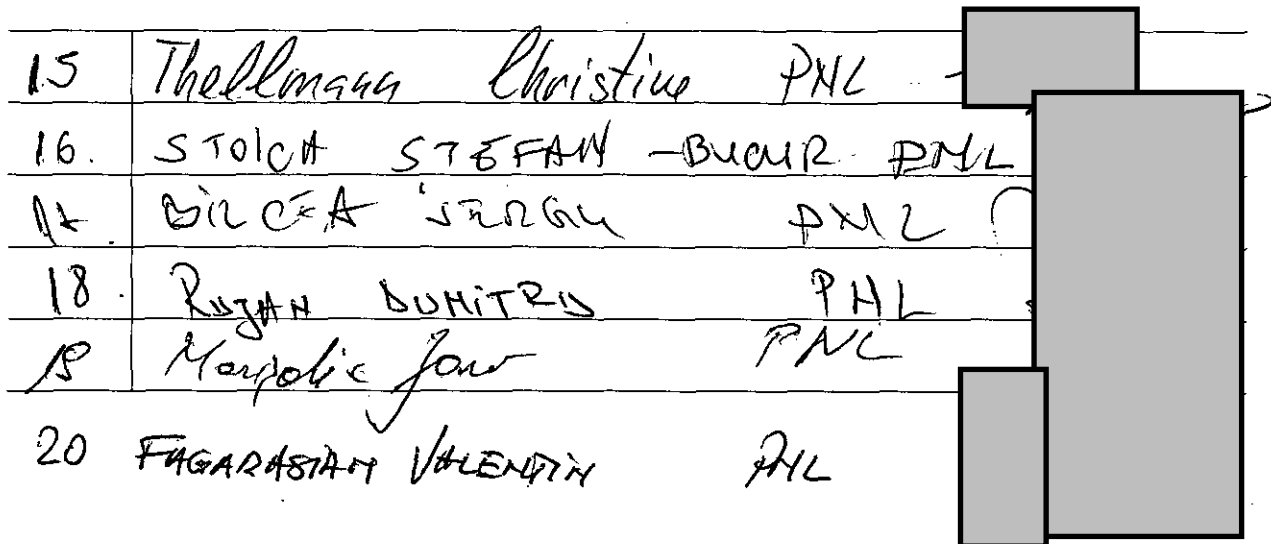 15 Thellmann Christine PNL -
16. STOICA STEFAN -BUCUR PNL
17. BILCEA SERGIU PNL
18. RUJAN DUMITRU PNL
19 PNL
20 FAGARASIAN VALENTIN PNL